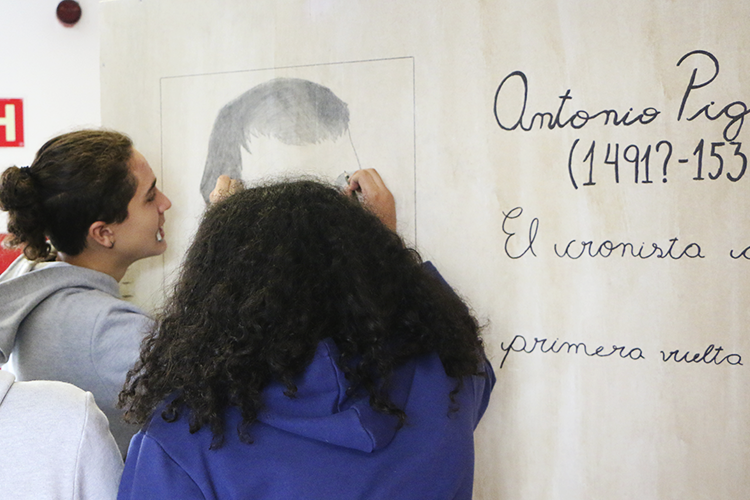 H
Antonio Pig
(1491?-153
El cronista
primera vuelta